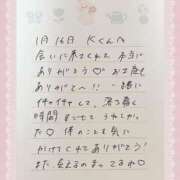 1月16日 Kくんへ
会いに来てくれて、本当に
ありがとう♡ お土産も
ありがとで〜!! 一緒に
イチャイチャして、落ち着く
時間 すごせて うれしかっ
た♡ 僕のことも気に
かけてくれて ありがとう!
また 会えるの まってるね♡